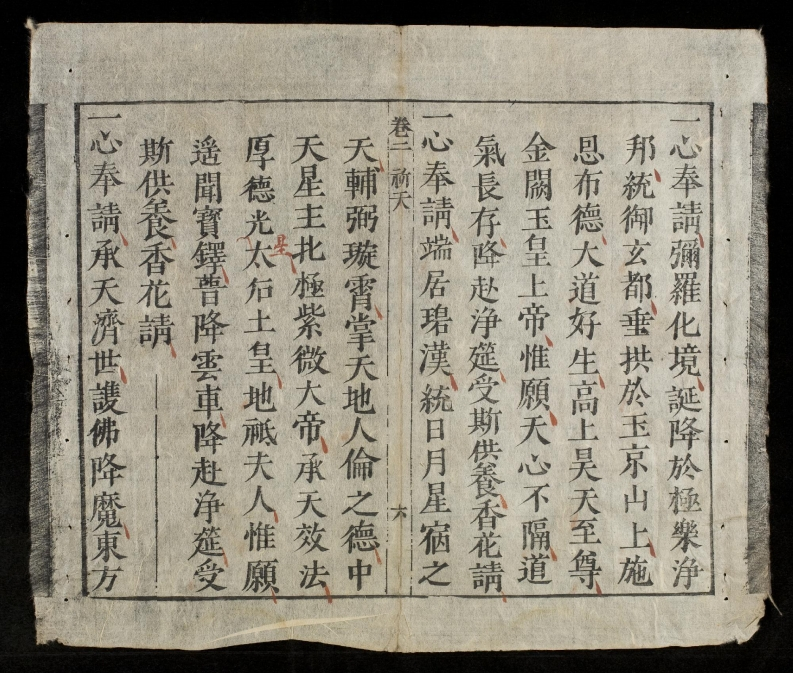 一心奉請彌羅化境誕降於極樂淨
邦統御玄都垂拱於玉京山上施
恩布德大道好生高上昊天至尊
金闕玉皇上帝惟願天心不隔道
氣長存降赴净筵受斯供養香花請
一心奉請端居碧漢統日月星宿之
卷二 祈天 六
天輔弼璇霄掌天地人倫之德中
天星主北極紫微大帝承天效法
厚德光太后土皇地祇夫人惟願
星
遥聞寳鐸曹降雲車降赴净筵受
斯供養香花請
一心奉請承天濟世護佛降魔東方